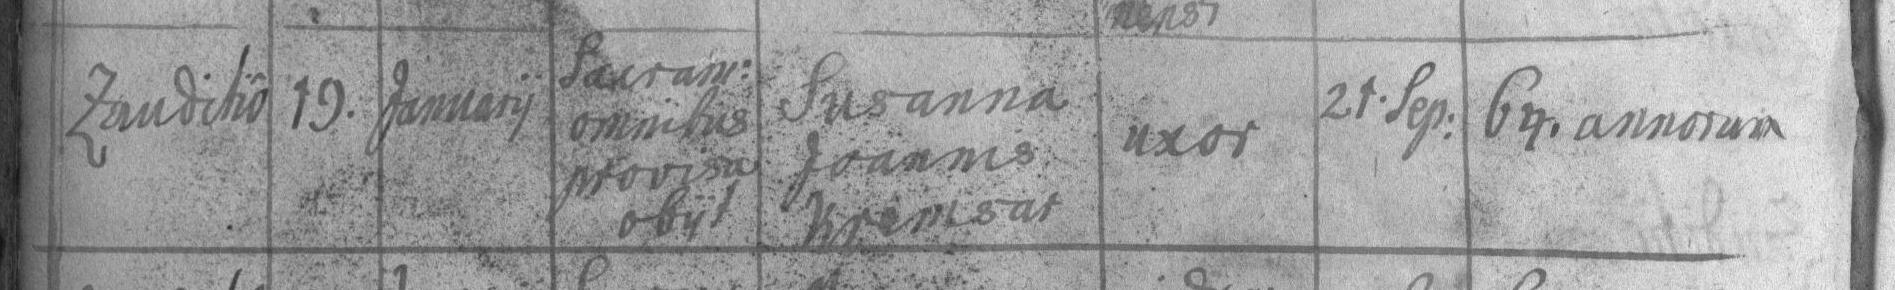 nensi
Zauditio 19. Januarij Sacram: omnibus provisa obijt Susanna Joannis Kremsar uxor 21. Sep: 64. annorum